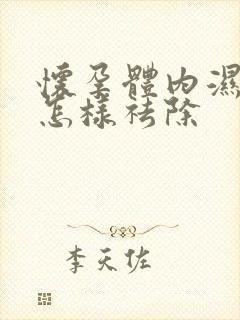 懷孕體內濕
怎樣祛除
李天佐